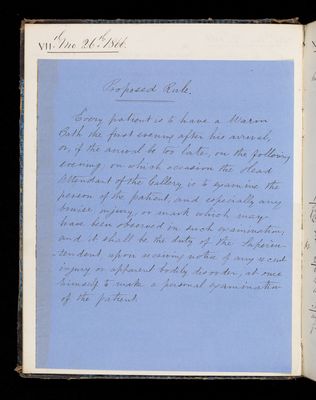 VII.th Mo 26th 1866.
Proposed Rule.
Every patient is to have a Warm
Bath the first evening after his arrival,
or, if the arrival be too late, on the following
evening, on which occasion the Head
Attendant of the Gallery is to examine the
person of the patient, and especially any
bruise, injury, or mark which may
have been observed on such examination;
and it shall be the duty of the Superin-
tendent, upon receiving notice of any recent
injury or apparent bodily disorder, at once
himself to make a personal examination
of the patient.